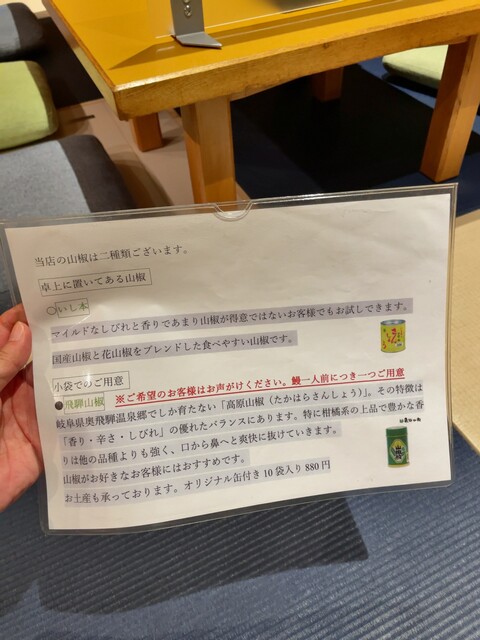 当店の山椒は二種類ございます。
卓上に置いてある山椒
○いし本
マイルドなしびれと香りであまり山椒が得意ではないお客様でもお試しできます。
国産山椒と花山椒をブレンドした食べやすい山椒です。
小袋でのご用意
※ご希望のお客様はお声がけください。鰻一人前につき一つご用意
●飛騨山椒
岐阜県奥飛騨温泉郷でしか育たない「高原山椒（たかはらさんしょう）」。その特徴は
「香り・辛さ・しびれ」の優れたバランスにあります。特に柑橘系の上品で豊かな香
りは他の品種よりも強く、口から鼻へと爽快に抜けていきます。
山椒がお好きなお客様にはおすすめです。
お土産も承っております。オリジナル缶付き10袋入り880円